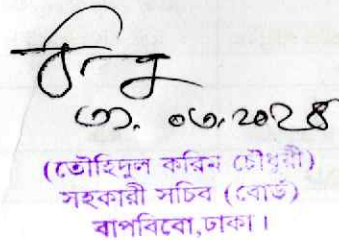 ৩১.০৩.২০২৪
(তৌহিদুল করিম চৌধুরী)
সহকারী সচিব (বোর্ড)
বাপবিবো,ঢাকা।